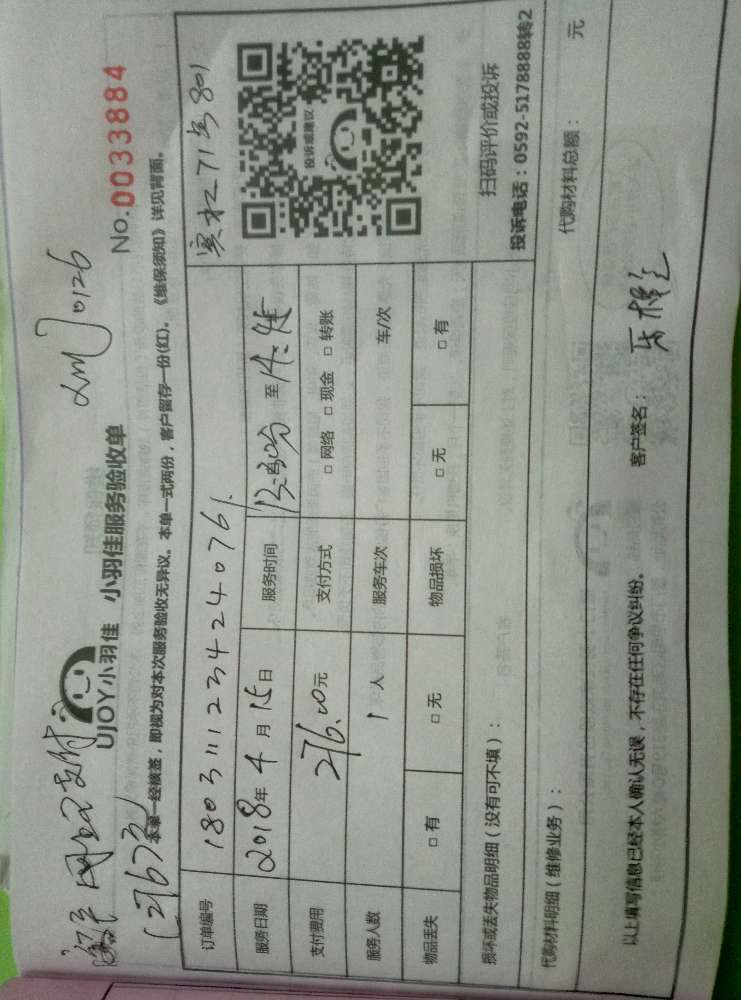 网络已支付
(276元)
0126
UJOY小羽佳 小羽佳服务验收单
No.0033884
本单一经核签，即视为对本次服务验收无异议。本单一式两份，客户留存一份(红)。《维保须知》详见背面。
订单编号 1803111234240761. 71号801
服务日期 2018年4月15日 服务时间 13:30分至14:45
支付费用 276.00元 支付方式 □网络 □现金 □转账
服务人数 1人 服务车次 车/次
物品丢失 □有 □无 物品损坏 □无 □有
投诉或建议
扫码评价或投诉
投诉电话：0592-5178888转2
损坏或丢失物品明细（没有可不填）：
代购材料明细（维修业务）： 代购材料总额： 元
以上填写信息已经本人确认无误，不存在任何争议纠纷。 客户签名：